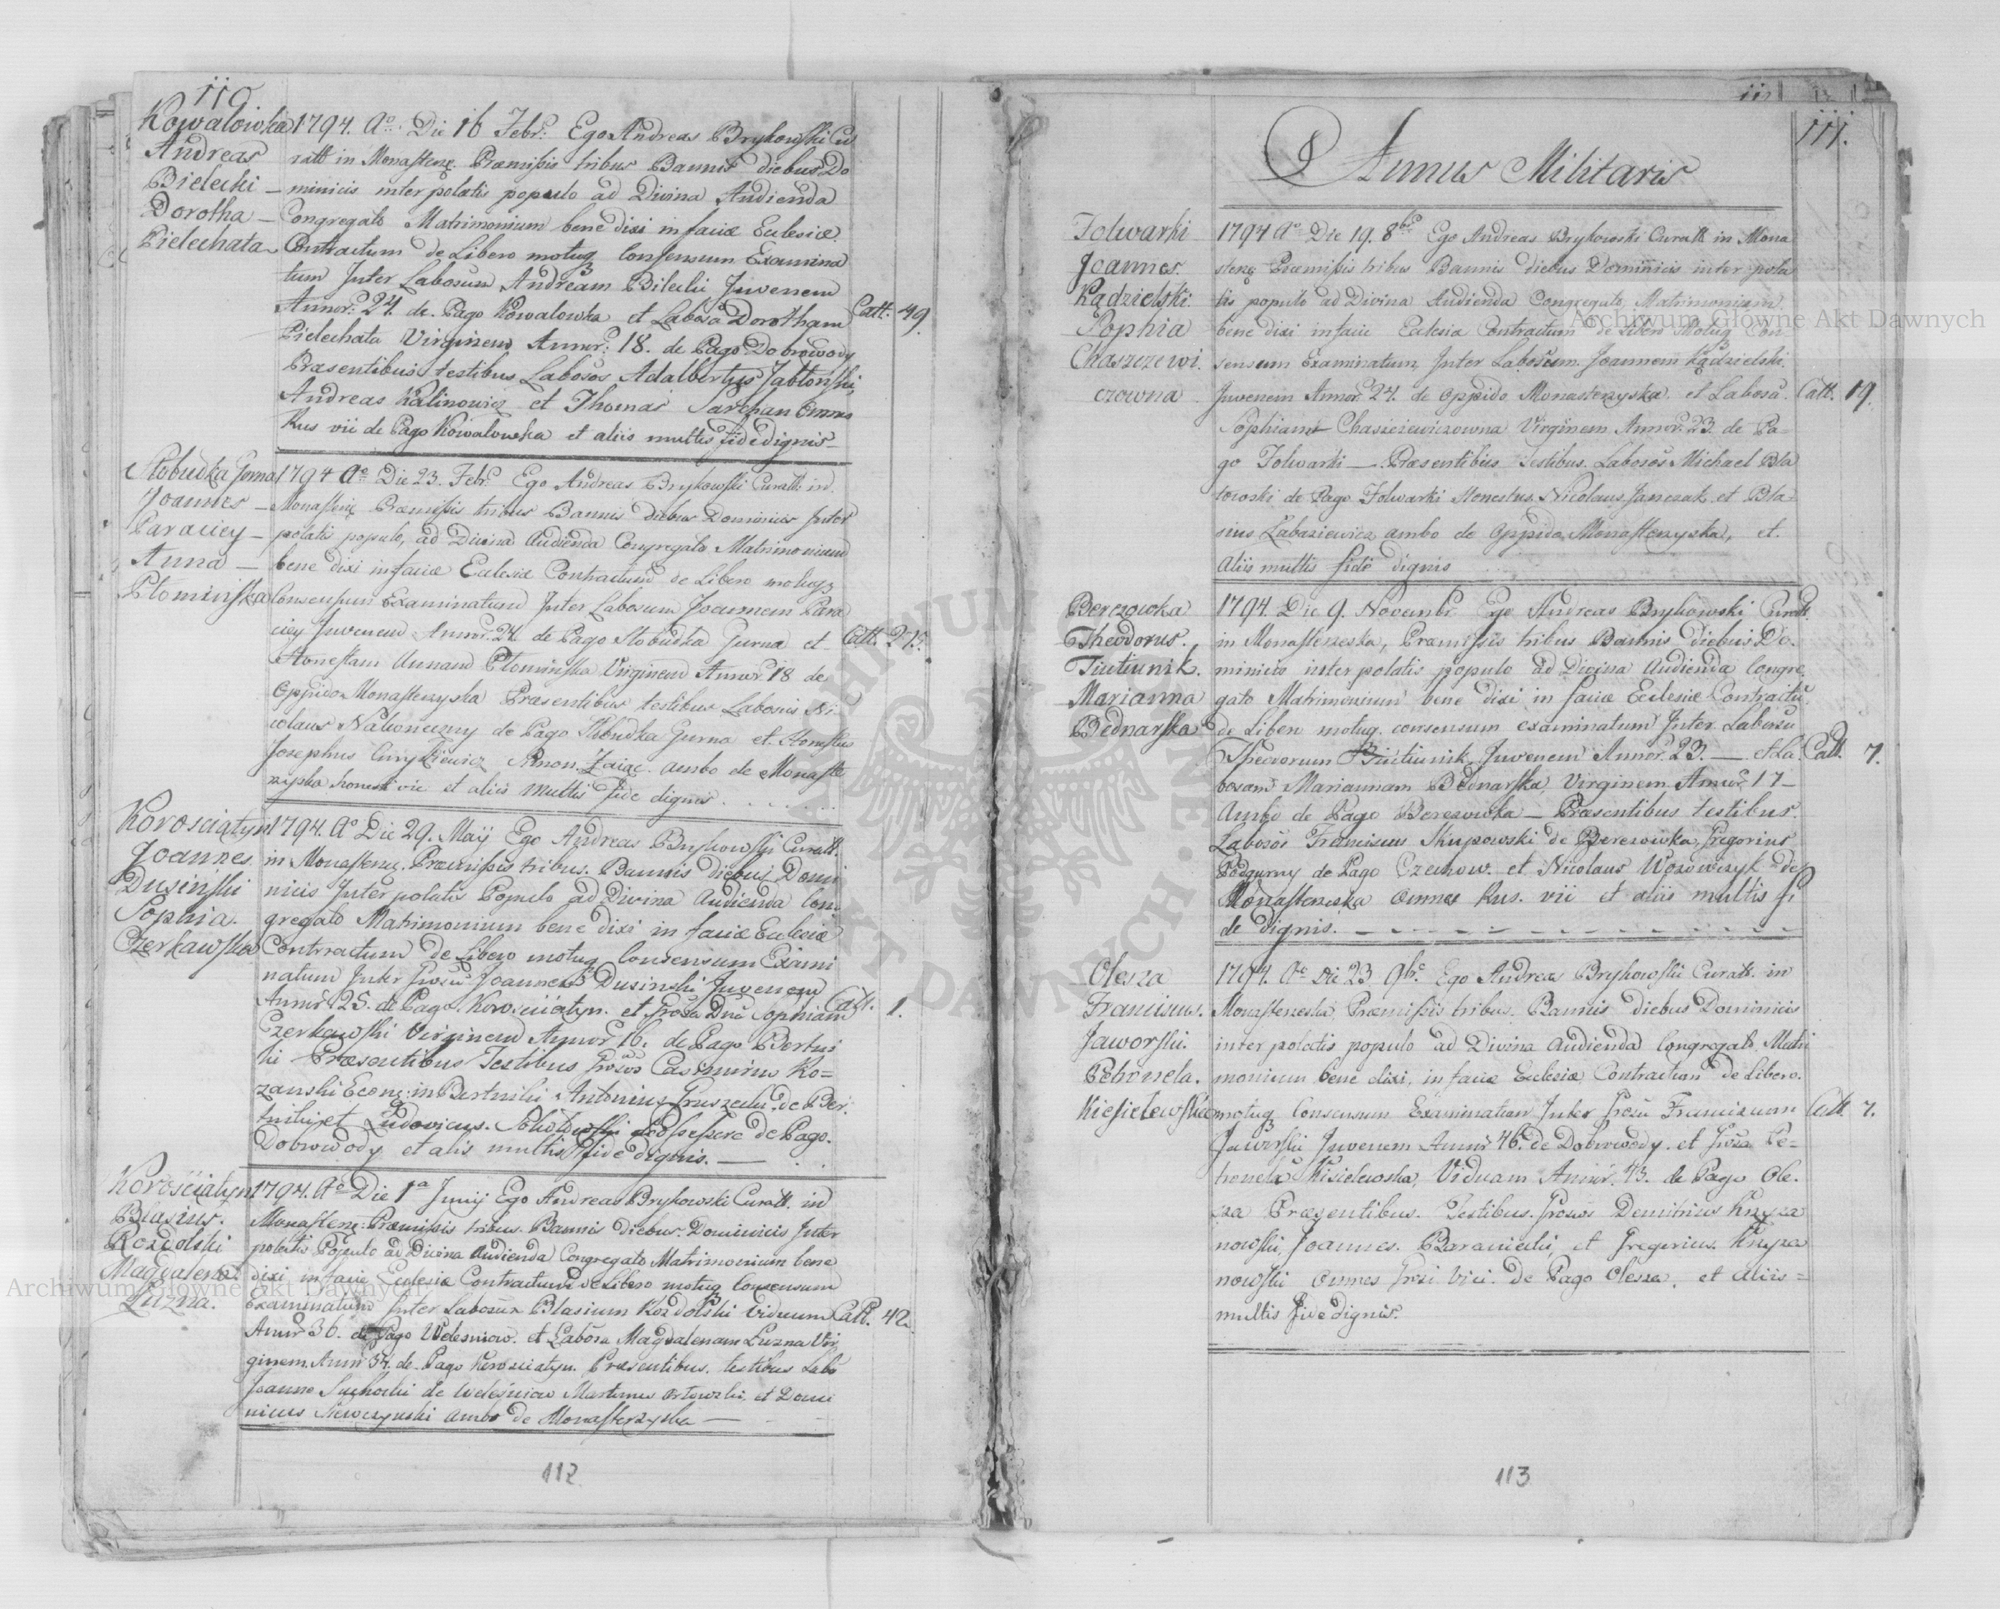 110
Kowalowka
Andreas
Bielecki
Dorotha
Pielechata
1794. Ao. Die 16 Febr. Ego Andreas Brykowski Cu
ratt in Monasterz. Præmissis tribus Bannis diebus Do
minicis interpolatis populo ad Divina Audienda
Congregato Matrimonium benedixi in facie Eclesiæ
Contractum de Libero motuq Consensum Examina
tum Inter Laborum Andream Bilecki Juvenem
Annor. 24. de Pago Kowalowka et Labosa Dorotham
Pielechata Virginem Annor. 18. de Pago Dobrowody
Præsentibus testibus Labosos Adalbertus Jabłonski,
Andreas Kalinowicz et Thomas Sarchan Omnes
Rus vii de Pago Kowalowka et aliis multis fide dignis
Catt. 49.
Słobudka Gorna
Joannes
Paraciey
Anna
Płominska
1794 Ao Die 23. Febr. Ego Andreas Brykowski Curatt in
Monasterz Præmissis tribus Bannis diebus Dominicis Inter
polatis populo, ad Divina Audienda Congregato Matrimonium
bene dixi in facie Eclesiæ Contractum de Libero motuq
Consensum Examinatum Inter Laborum Joannem Para
ciey Juvenem Annor. 24. de Pago Słobudka Gurna et
Honestam Annam Płominska Virginem Annor. 18 de
Oppido Monasterzyska Præsentibus testibus Labosus Ni
colaus de Pago Słobudka Gurna et Honestus
Josephus Simon Zaiąc ambo de Monaste
rzyska honesti vii et aliis multis fide dignis
Catt. 275.
Korosciatyn
Joannes
Dusiński
Sophia.
Czerkawska
1794. Ao Die 29. Maij Ego Andreas Brykowski Curatt.
in Monasterz. Præmissis tribus. Bannis Diebus Domi
nicis Interpolatis Populo ad Divina Audienda Con
gregato Matrimonium bene dixi in faciæ Eclesiæ
Contractum de Libero motuq Consensum Exami
natum Inter Joannem Dusinski Juvenem
Annor 25. de Pago Korosciatyn. et Sophiam
Czerkawski Virginem Annor 16. de Pago Bertni
ki Præsentibus Testibus Casimirus Ko=
zanski Econ: in Bertniki Antonius Gruszecki de Ber:
tniki et Ludovicus. de Pago.
Dobrowody et alis multis fide dignis.
Catt. 1.
Korościatyn
Blasius.
Rozdolski
Magdalena.
Luzna.
1794. Ao Die 1a Junij Ego Andreas Brykowski Curatt. in
Monasterz: Præmissis tribus. Bannis Diebus. Dominicis Inter
polatis Populo ad Divina Audienda Congregato Matrimonium bene
dixi in facie Eclesiæ Contractum de Libero motuq Consensum
Examinatum Inter Laborum Blasium Rozdolski Viduum
Annor 36. de Pago Welesniow. et Labosa Magdalenam Luzna Vir
ginem Annor 34. de Pago Korosciatyn. Præsentibus. testibus Labo
Joannes Suchocki de Weleśniow Martinus et Domi
nicus ambo de Monasterzyska
Catt. 42.
112
111.
Annus Militaris
Folwarki
Joannes.
Kądzielski
Sophia
Chaszczewi
czowna
1794 Ao Die 19. 8br Ego Andreas Brykowski Curatt in Mona
sterz Præmissis tribus Bannis diebus Dominicis interpola
tis populo ad Divina Audienda Congregato Matrimonium
bene dixi in facie Eclesia Contractum de Libero Motuq Con
sensum Examinatum, Inter Laborum. Joannem Kądzielski.
Juvenem Annor. 24. de oppido Monasterzyska et Labosa.
Sophiam Chaszczewiczowna Virginem Annor. 23. de Pa
go Folwarki — Præsentibus Testibus. Labosos Michael Bła
towski de Pago Folwarki Honestus Nicolaus Janczak et Bla=
sius Łabaziewicz ambo de oppido Monasterzyska, et.
Aliis multis fide dignis
Catt. 19.
Berezowka
Theodorus.
Tiutiunik.
Marianna
Bednarska
1794. Die 9. Novemb. Ego Andreas Brykowski Curatt.
in Monasterzeska, Præmissis tribus Bannis diebus Do.
minicis interpolatis populo ad Divina Audienda Congre
gato Matrimonium bene dixi in faciæ Eclesiæ Contractu
de Libero motuq. consensum examinatum Inter Laborum
Theodorum Tiutiunik Juvenem Annor. 23. — et La.
bosam Mariannam Bednarska, Virginem Annor. 17 —
Ambo de Pago Berezowka — Præsentibus testibus.
Labosos Franciscus Skupowski de Berezowka, Gregorius
Podgurny de Pago Czechow. et Nicolaus Wozowczyk de
Monasterzeska omnes Rus. vii et aliis multis fi
de dignis.
Catt. 7.
Olesza
Franciscus.
Jaworski.
Petronela.
Kisielewska
1794. Ao Die 23 9br. Ego Andreas Brykowski Curatt. in
Monasterzeska Præmissis tribus. Bannis diebus Dominicis
interpolatis populo ad Divina Audienda Congregato Matri
monium bene dixi, in faciæ Eclesiæ Contractum de Libero.
motuq Consensum Examinatum Inter Franciscum
Jaworski Juvenem Annor 46. de Dobrowody. et Pe=
tronela Kisielewska, Viduam Annor. 43. de Pago Ole.
sza Præsentibus. Testibus. Demitrius Knyza
nowski, Joannes. Baraniecki, et Gregorius. Knyza
nowski omnes de Pago Olesza. et aliis=
multis fide dignis.
Catt. 7.
113
Archiwum Główne Akt Dawnych
Archiwum Główne Akt Dawnych
ARCHIWUM GŁÓWNE AKT DAWNYCH